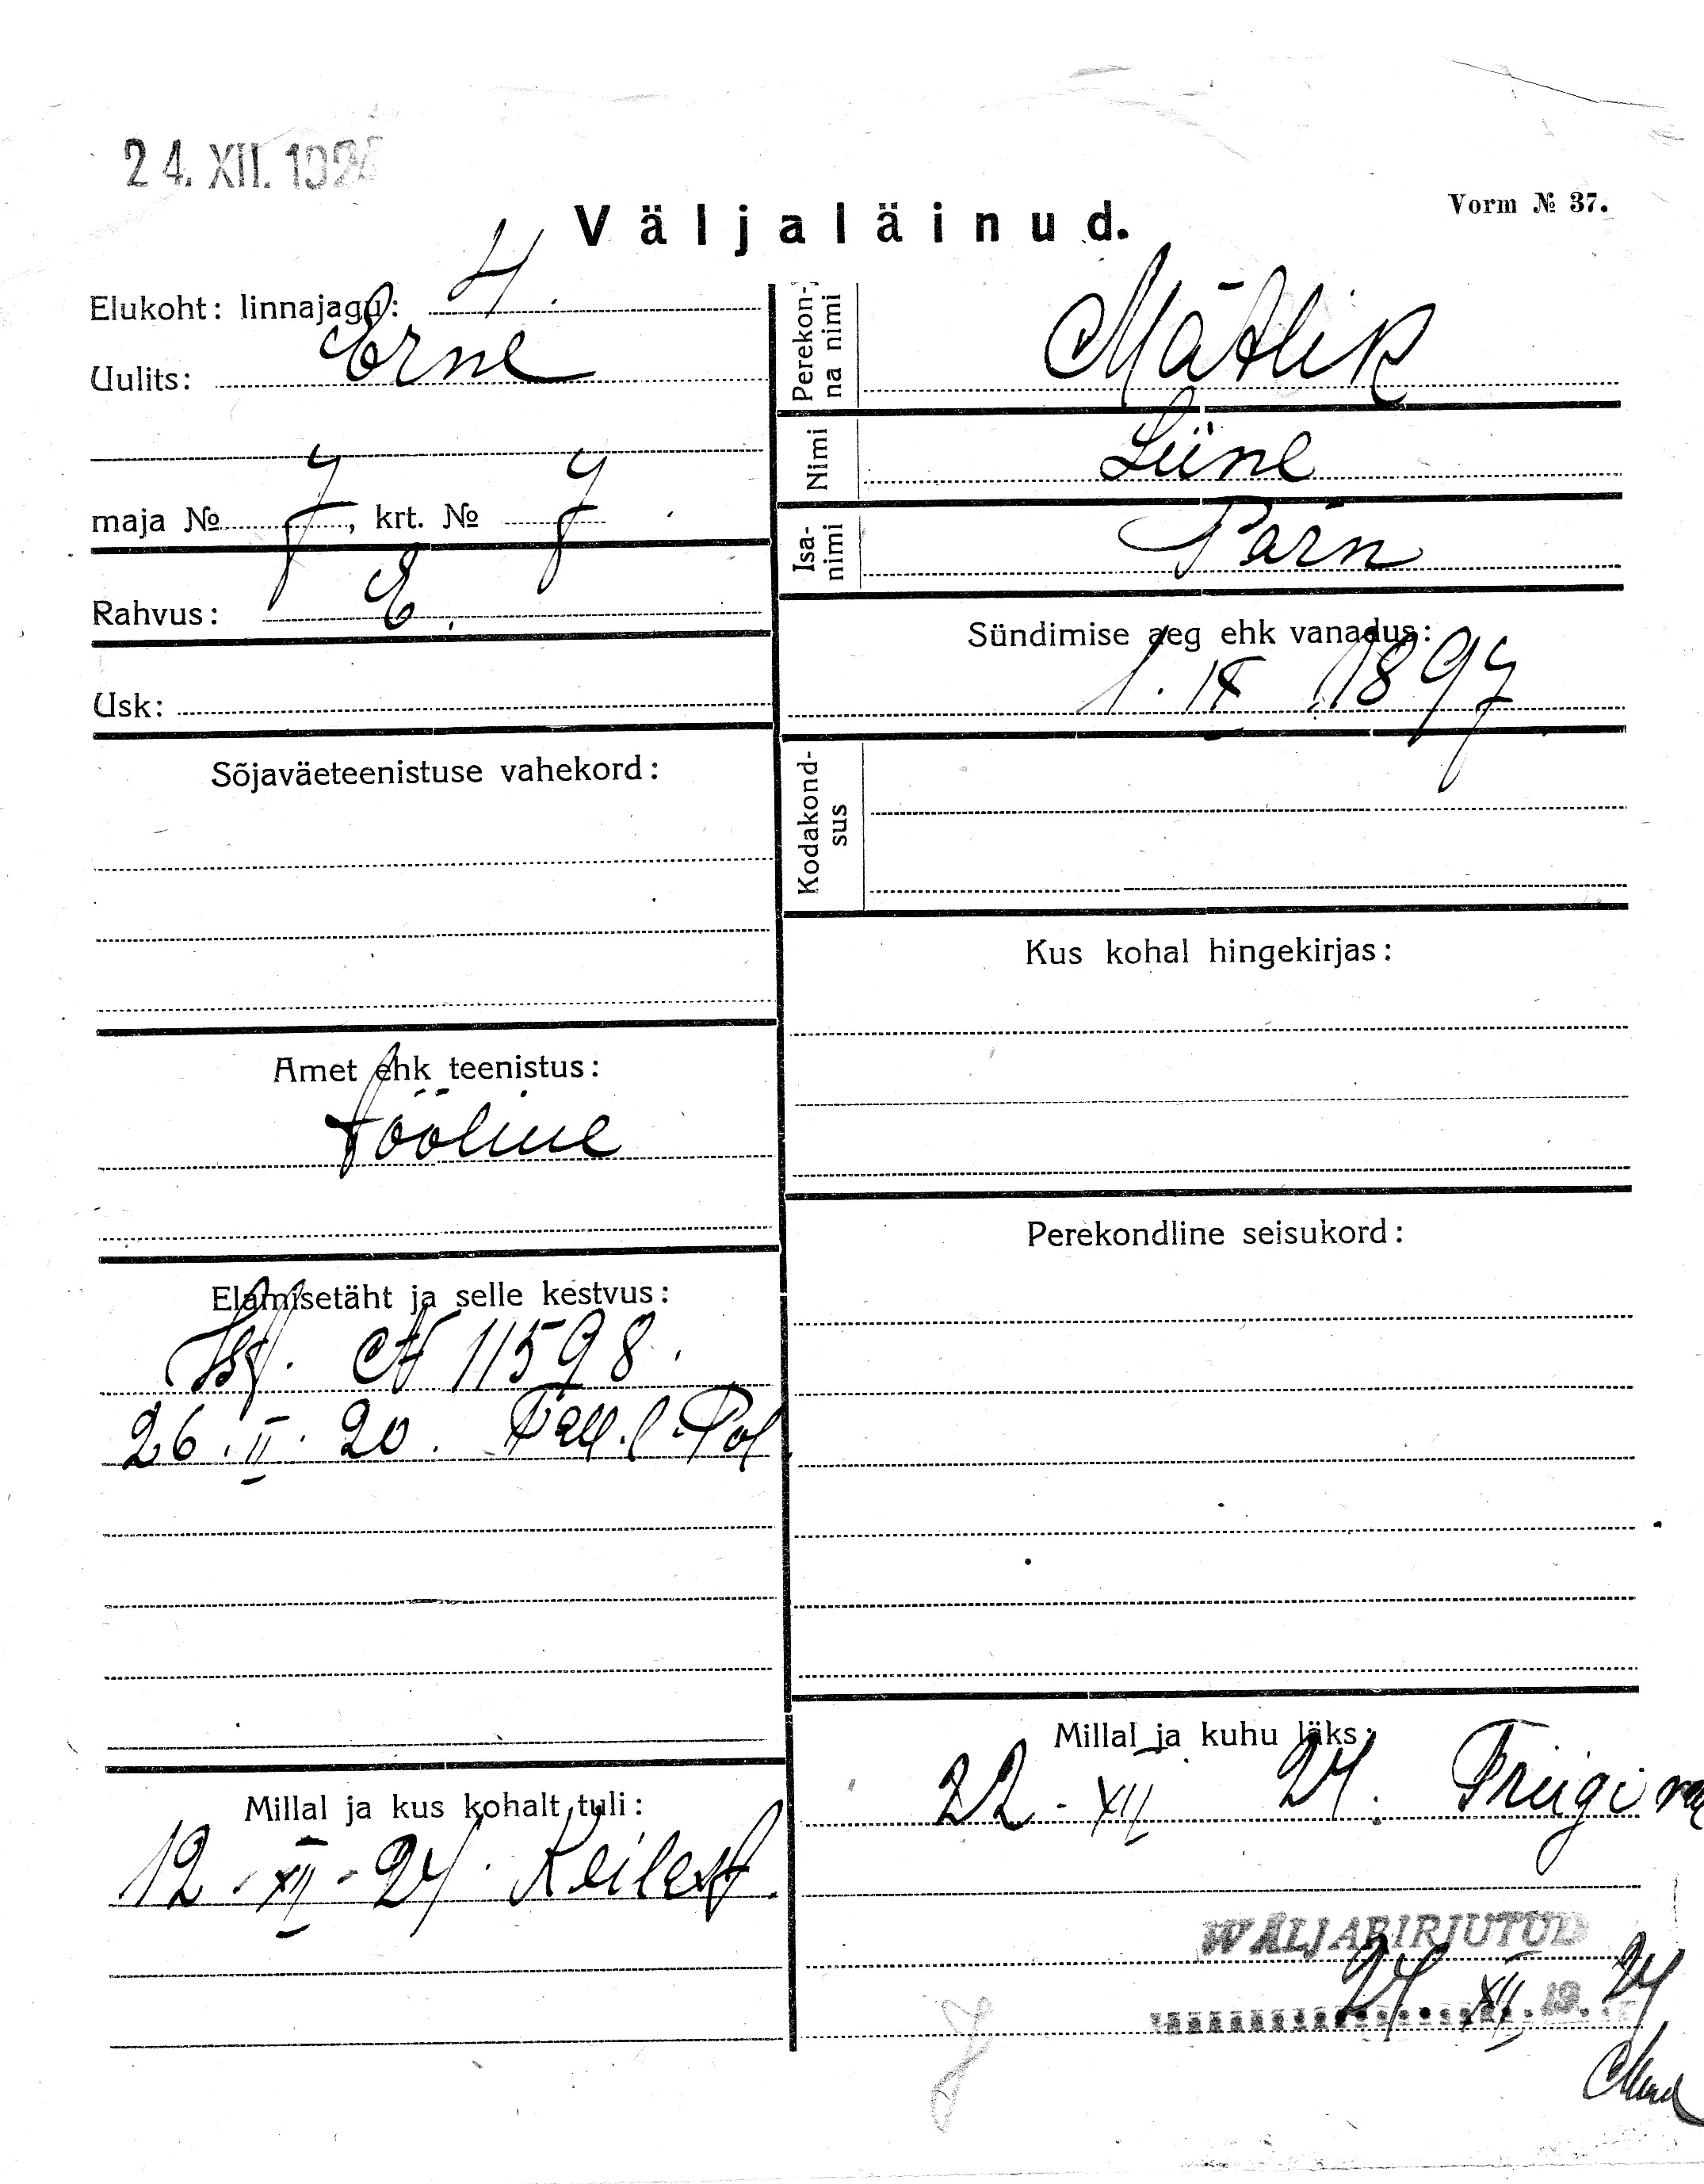 24. XII. 192
Vorm № 37.
Väljaläinud.
Elukoht: linnajagu: 4.
Uulits: Erne
maja № 7, krt. № 7.
Rahvus: E.
Usk:
Sõjaväeteenistuse vahekord:
Amet ehk teenistus:
tööline
Elamisetäht ja selle kestvus:
№ 11598.
26. II. 20. Tall. l. Pol
Millal ja kus kohalt tuli:
12 - XII - 24. Keilast.
Perekonna nimi Mätlik
Nimi Liine
Isanimi Pärn
Sündimise aeg ehk vanadus:
1. IX 1897
Kodakondsus
Kus kohal hingekirjas:
Perekondline seisukord:
Millal ja kuhu läks:
22 - XII 24. Triigi
WÄLJAKIRJUTUD
24. XII. 19. 24